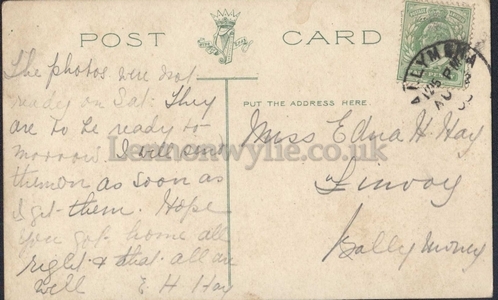 POST CARD
The photos were not
ready on Sat: They
are to be ready to
morrow I will send
them on as soon as
I get them. Hope
you got home all
right & that all are
well E H Hay
PUT THE ADDRESS HERE.
Miss Edna H. Hay
Finvoy
Ballymoney
Lennonwylie.co.uk